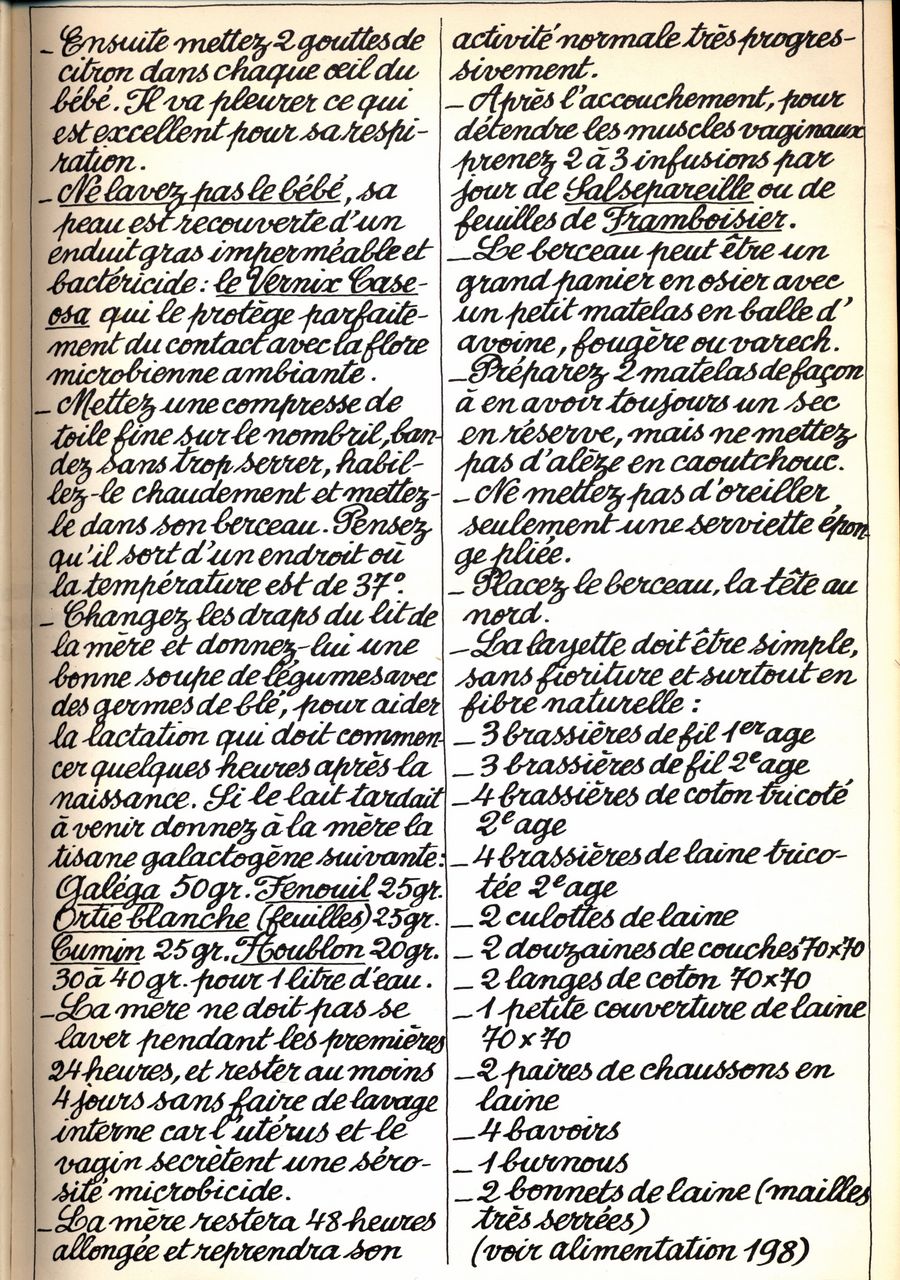 _ Ensuite mettez 2 gouttes de
citron dans chaque œil du
bébé. Il va pleurer ce qui
est excellent pour sa respi-
ration.
_ Ne lavez pas le bébé, sa
peau est recouverte d'un
enduit gras imperméable et
bactéricide : le Vernix Case-
osa qui le protège parfaite-
ment du contact avec la flore
microbienne ambiante.
_ Mettez une compresse de
toile fine sur le nombril, ban-
dez sans trop serrer, habil-
lez-le chaudement et mettez-
le dans son berceau. Pensez
qu'il sort d'un endroit où
la température est de 37°.
_ Changez les draps du lit de
la mère et donnez-lui une
bonne soupe de légumes avec
des germes de blé, pour aider
la lactation qui doit commen-
cer quelques heures après la
naissance. Si le lait tardait
à venir donnez à la mère la
tisane galactogène suivante:
Galéga 50gr. Fenouil 25gr.
Ortie blanche (feuilles) 25gr.
Cumin 25gr. Houblon 20gr.
30 à 40gr. pour 1 litre d'eau.
_ La mère ne doit pas se
laver pendant les premières
24 heures, et rester au moins
4 jours sans faire de lavage
interne car l'utérus et le
vagin secrètent une séro-
sité microbicide.
_ La mère restera 48 heures
allongée et reprendra son
activité normale très progres-
sivement.
_ Après l'accouchement, pour
détendre les muscles vaginaux
prenez 2 à 3 infusions par
jour de Salsepareille ou de
feuilles de Framboisier.
_ Le berceau peut être un
grand panier en osier avec
un petit matelas en balle d'
avoine, fougère ou varech.
_ Préparez 2 matelas de façon
à en avoir toujours un sec
en réserve, mais ne mettez
pas d'alèze en caoutchouc.
_ Ne mettez pas d'oreiller
seulement une serviette épon-
ge pliée.
_ Placez le berceau, la tête au
nord.
_ La layette doit être simple,
sans fioriture et surtout en
fibre naturelle :
_ 3 brassières de fil 1er age
_ 3 brassières de fil 2e age
_ 4 brassières de coton tricoté
2e age
_ 4 brassières de laine trico-
tée 2e age
_ 2 culottes de laine
_ 2 douzaines de couches 70x70
_ 2 langes de coton 70x70
_ 1 petite couverture de laine
70 x 70
_ 2 paires de chaussons en
laine
_ 4 bavoirs
_ 1 burnous
_ 2 bonnets de laine (mailles
très serrées)
(voir alimentation 198)